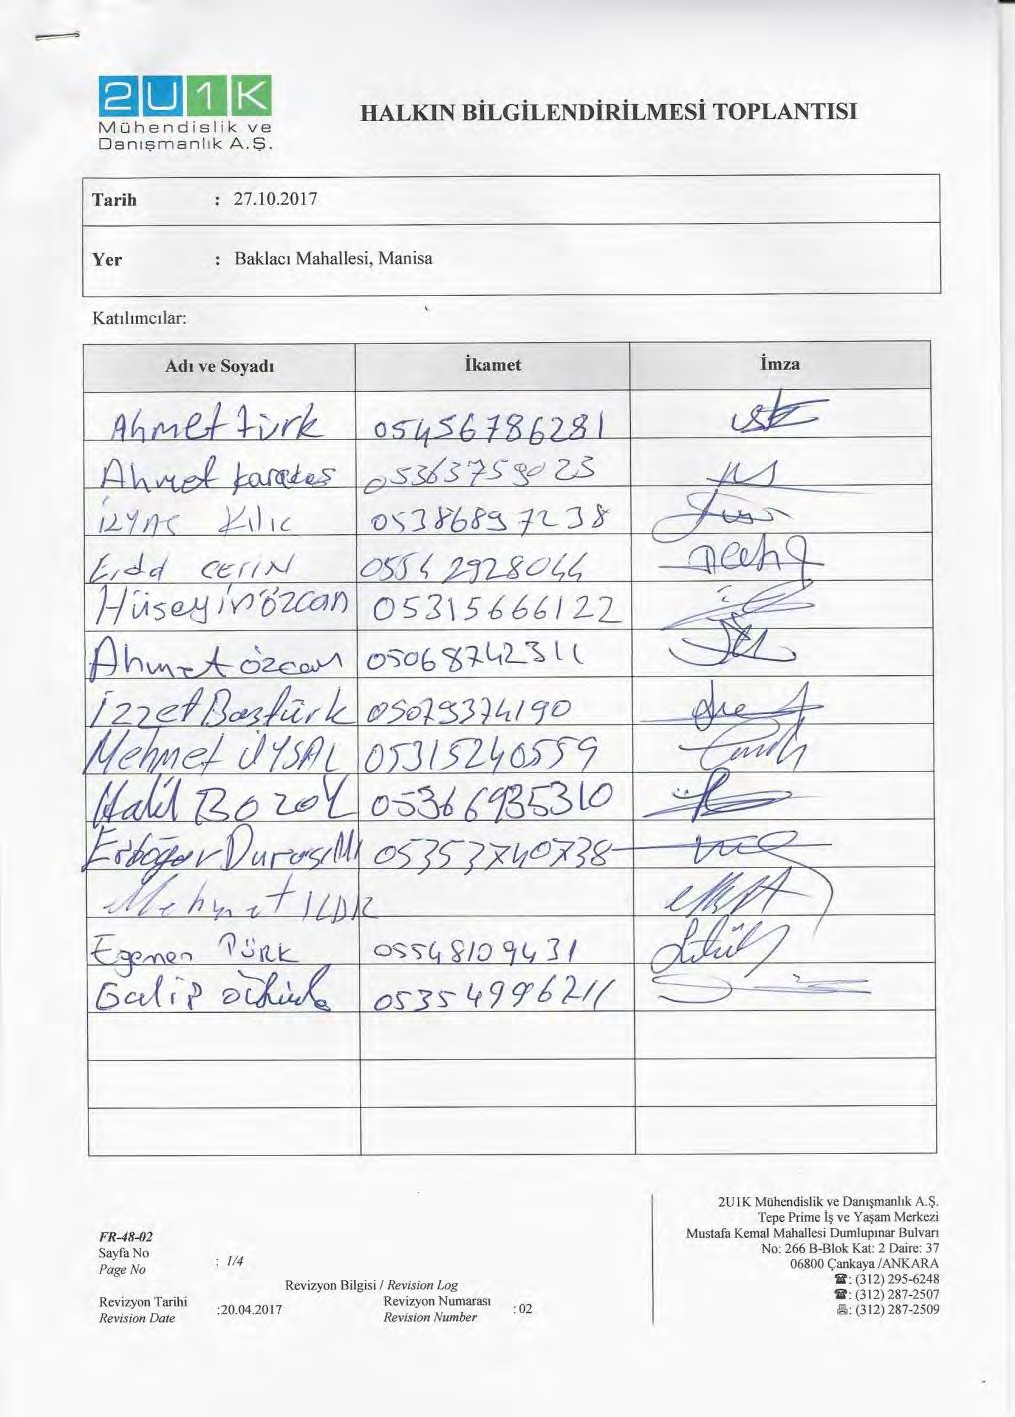 2U1K
Mühendislik ve
Danışmanlık A.Ş.
HALKIN BİLGİLENDİRİLMESİ TOPLANTISI
Tarih : 27.10.2017
Yer : Baklacı Mahallesi, Manisa
Katılımcılar:
Adı ve Soyadı İkamet İmza
Ahmet türk 05456786281
Ahmet karataş 05363759023
Kılıc 05386897238
ÇETİN 05542928044
Hüseyin özcan 05315666122
Ahmet özcan 05068742311
İzzet Baştürk 05079374190
Mehmet UYSAL 05315240559
Halil BOZOY 05366935310
05353740738
Mehmet
Egemen TÜRK 05548109431
Galip 05354996211
FR-48-02
Sayfa No
Page No : 1/4
Revizyon Bilgisi / Revision Log
Revizyon Tarihi
Revision Date :20.04.2017
Revizyon Numarası
Revision Number : 02
2U1K Mühendislik ve Danışmanlık A.Ş.
Tepe Prime İş ve Yaşam Merkezi
Mustafa Kemal Mahallesi Dumlupınar Bulvarı
No: 266 B-Blok Kat: 2 Daire: 37
06800 Çankaya /ANKARA
☎: (312) 295-6248
☎: (312) 287-2507
🖷: (312) 287-2509